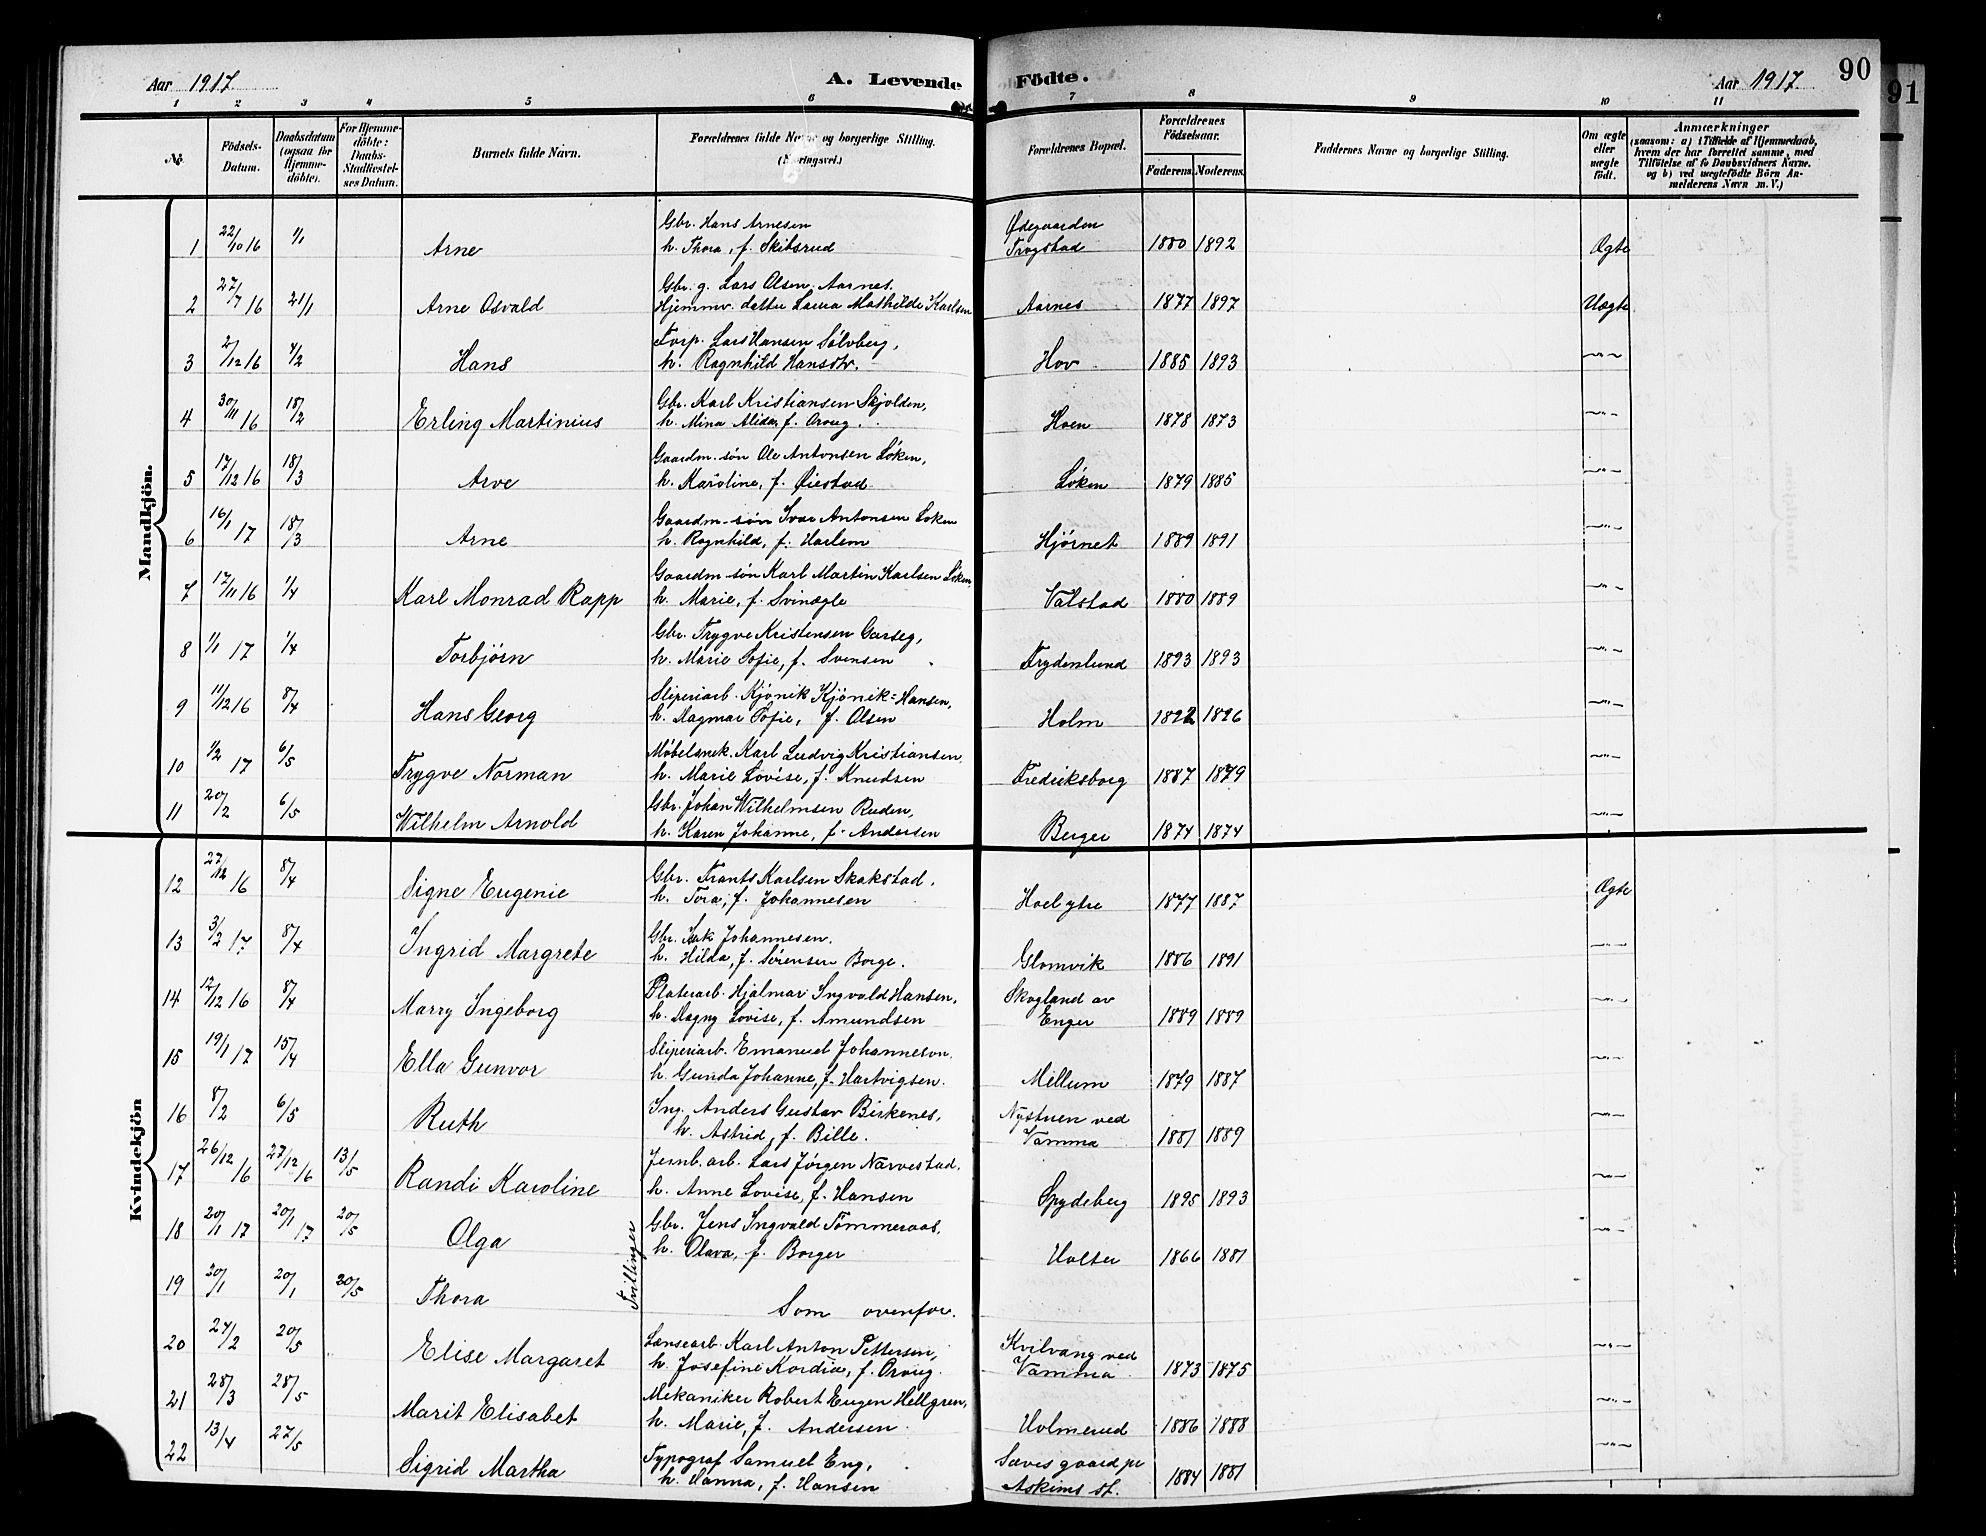 Aar 1917. A. Levende Födte. Aar 1917. 90
91
1 2 3 4 5 6 7 8 9 10 11
No. Födsels-Datum. Daabsdatum (ogsaa for Hjemme-döbte). For Hjemme-döbte: Daabs-Stadfæstel-ses Datum. Barnets fulde Navn. Forældrenes fulde Navne og borgerlige Stilling. (Næringsvei.) Forældrenes Bopæl. Forældrenes Födselsaar. Faderens. Moderens. Faddernes Navne og borgerlige Stilling. Om ægte eller uægte födt. Anmærkninger (saasom: a) i Tilfælde af Hjemmedaab, hvem der har forrettet samme, med Tilföielse af to Daabsvidners Navne. og b) ved uægtefödte Börn An-melderens Navn m. V.)
Mandkjön.
Gbr. Hans Arnesen Ødegaarden
1 22/10 16 1/1 Arne h. Thora, f. Skibsrud Trøgstad 1880 1892 Ægte
Gbr. g. Lars Olsen Aarnes.
2 27/7 16 21/1 Arne Osvald Hjemmv. datter Laura Mathilde Karlsen Aarnes 1877 1897 Uægte
Torp. Lars Hansen Sölvberg,
3 2/12 16 4/2 Hans h. Ragnhild Hansdtr. Hov 1885 1893 —"—
Gbr. Karl Kristiansen Skjolden,
4 30/11 16 18/2 Erling Martinius h. Mina Alida, f. Oraug. Hoen 1878 1873 —"—
Gaardm. søn Ole Antonsen Løken,
5 17/12 16 18/3 Arve h. Karoline, f. Øiestad Løken 1879 1885 —"—
Gaardm. søn Ivar Antonsen Løken
6 16/1 17 18/3 Arne h. Ragnhild, f. Harlem Hjørnet 1889 1891 —"—
Gaardm. søn Karl Martin Karlsen Løken,
7 17/11 16 1/4 Karl Monrad Rapp h. Marie, f. Svinægle Valstad 1880 1889 —"—
Gbr. Trygve Kristensen Garseg,
8 1/1 17 1/4 Torbjörn h. Marie Sofie, f. Svensen Frydenlund 1893 1893 —"—
Sliperiarb. Kjønik Kjønik-Hansen,
9 11/12 16 8/4 Hans Georg h. Dagmar Sofie, f. Olsen Holm 1892 1896 —"—
Møbelsnek. Karl Ludvig Kristiansen,
10 1/2 17 6/5 Trygve Norman h. Marie Lovise, f. Knudsen Fredriksborg 1887 1879 —"—
Gbr. Johan Wilhelmsen Ruden,
11 20/2 6/5 Wilhelm Arnold h. Karen Johanne, f. Andersen Berger 1874 1874 —"—
Kvindekjön
Gbr. Frants Karlsen Skakstad,
12 27/12 16 8/4 Signe Eugenie h. Tora, f. Johannesen Hoel ytre 1877 1887 Ægte
Gbr. Isak Johannesen,
13 3/2 17 8/4 Ingrid Margrete h. Hilda, f. Sørensen Borge. Glomvik 1886 1891 —"—
Platerarb. Hjalmar Ingvald Hansen, Skogland av
14 12/12 16 8/4 Marry Ingeborg h. Magny Lovise, f. Amundsen Enger 1889 1889 —"—
Sliperiarb. Emanuel Johanneson.
15 19/1 17 15/4 Ella Gunvor h. Gunda Johanne, f. Hartvigsen. Mellum 1879 1887 —"—
Ing. Anders Gustav Birkenes, Nystuen ved
16 8/2 6/5 Ruth h. Astrid, f. Bille. Vamma 1881 1889 —"—
Jernb. arb. Lars Jørgen Narvestad,
17 26/12 16 27/12 16 13/5 Randi Karoline h. Anne Lovise, f. Hansen Spydeberg 1895 1893 —"—
Gbr. Jens Ingvald Tømmeraas,
18 20/1 17 20/1 17 20/5 Olga h. Olava, f. Borger Holter 1866 1881 —"—
Tvillinger
19 20/1 20/1 20/5 Thora Som ovenfor.
Lænsearb. Karl Anton Pettersen, Kvilvang ved
20 24/2 20/5 Elise Margaret h. Josefine Kordia, f. Oraug. Vamma 1873 1875 —"—
Mekaniker Robert Eugen Hellgren,
21 28/3 28/5 Marit Elisabet h. Marie, f. Andersen Holmerud 1886 1888 —"—
Typograf Samuel Eng, Sævesgaard pr
22 13/4 27/5 Sigrid Martha h. Hanna, f. Hansen Askims st. 1884 1881 —"—